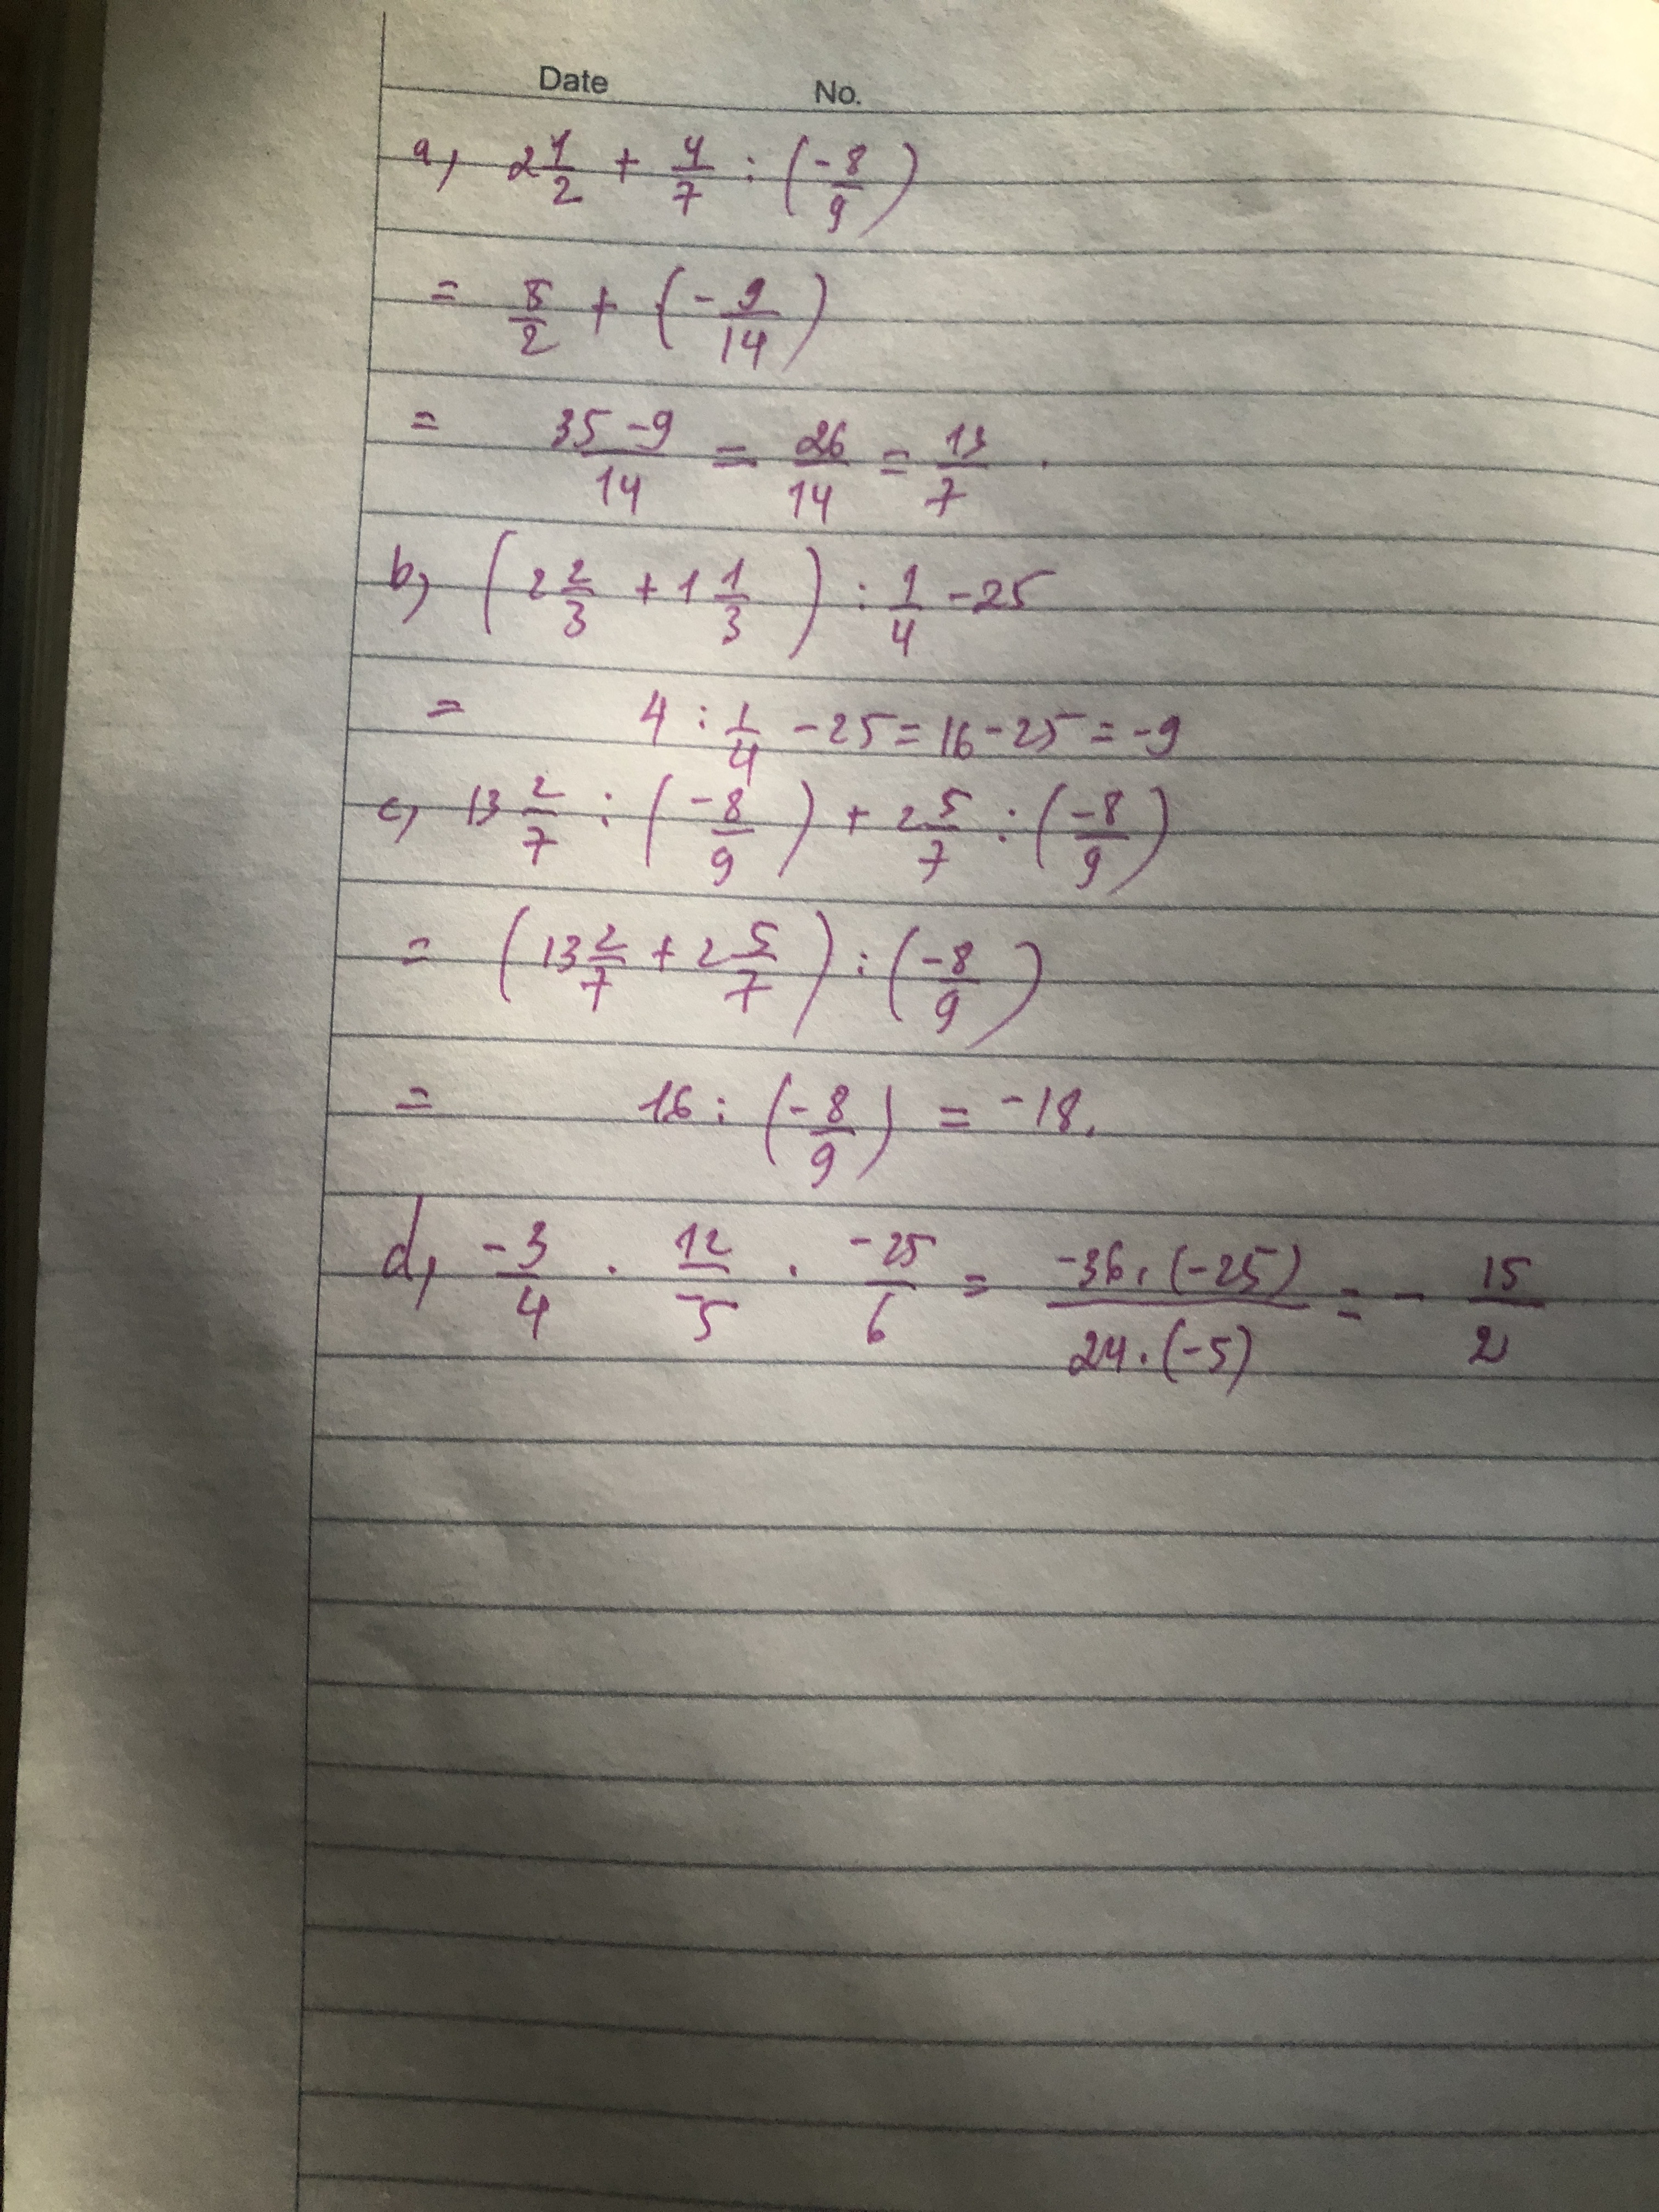 Date No.
a, 2 1/2 + 4/7 : (-8/9)
= 5/2 + (-9/14)
= 35-9/14 = 26/14 = 13/7 .
b, (2 2/3 + 1 1/3) : 1/4 - 25
= 4 : 1/4 - 25 = 16 - 25 = -9
c, 13 2/7 : (-8/9) + 2 5/7 : (-8/9)
= (13 2/7 + 2 5/7) : (-8/9)
= 16 : (-8/9) = -18.
d, -3/4 . 12/-5 . -25/6 = -36.(-25)/24.(-5) = - 15/2